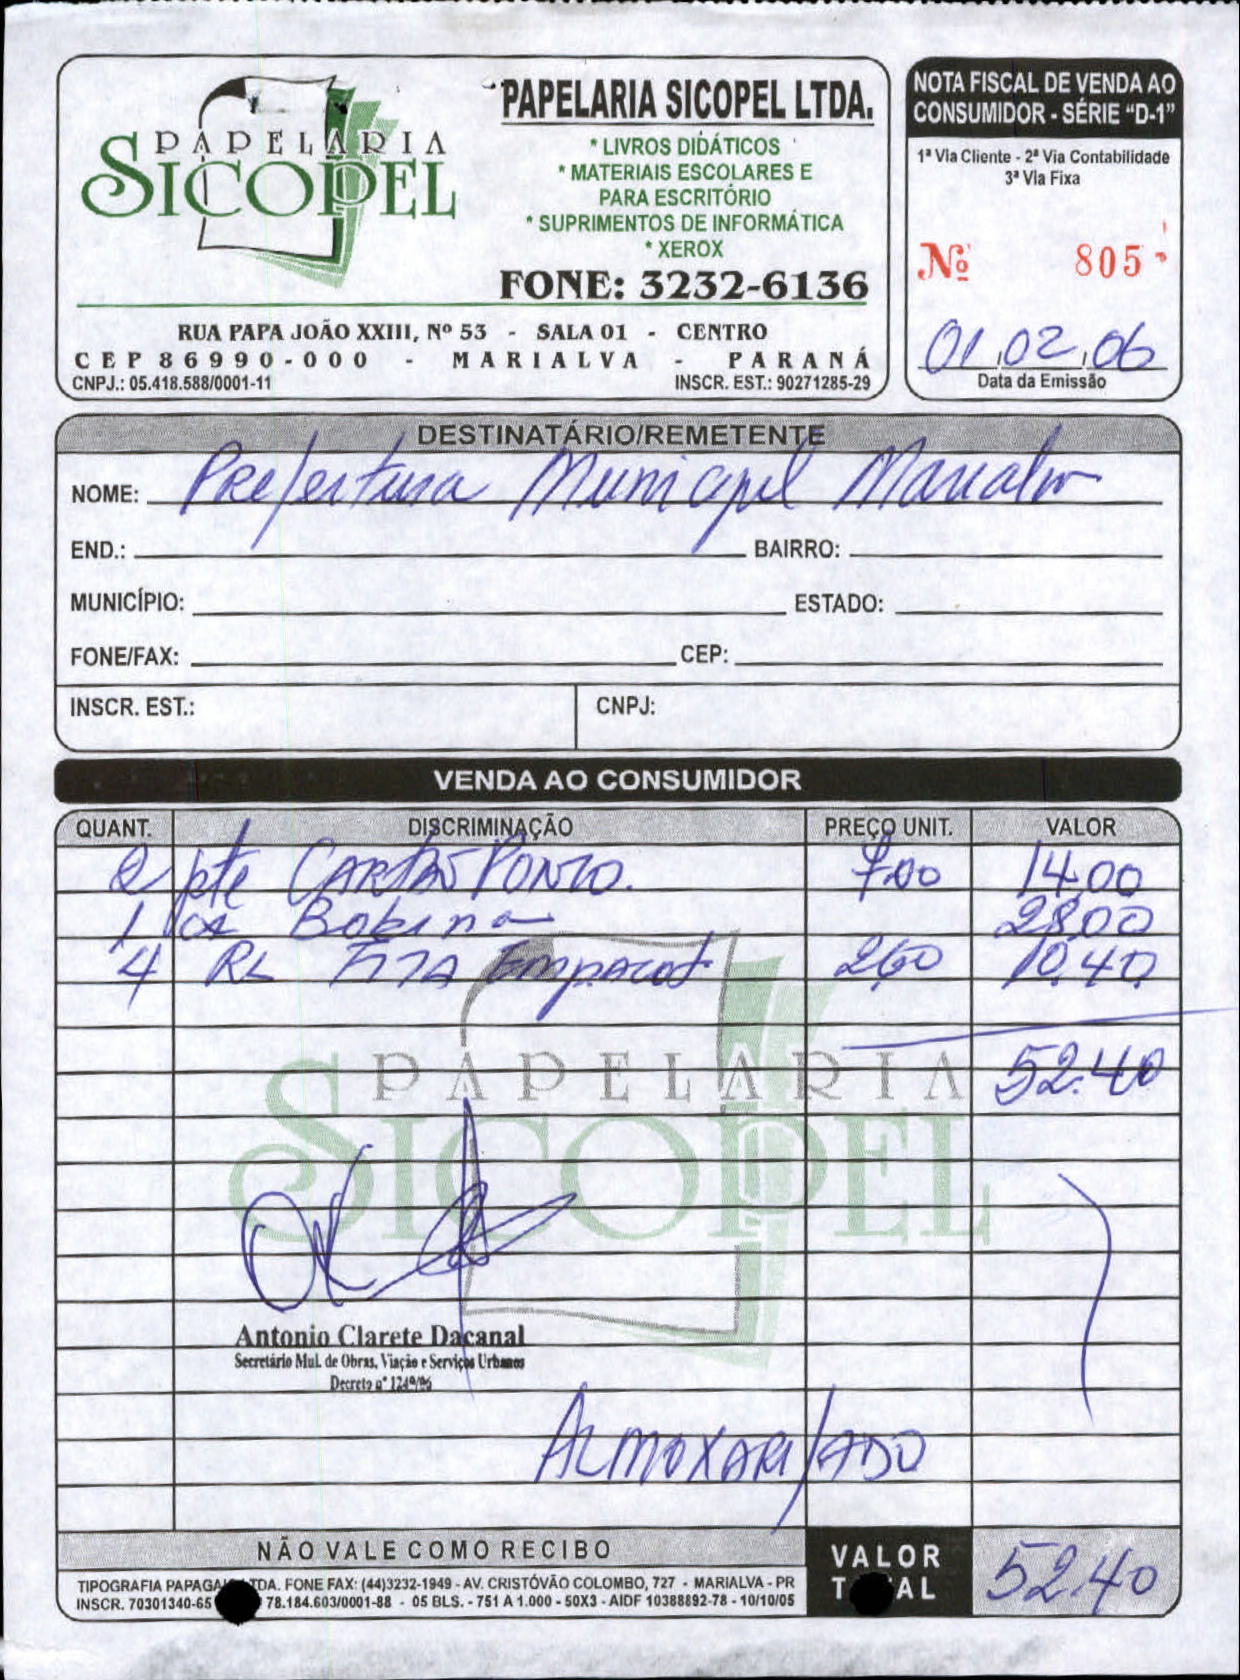 PAPELARIA
SICOPEL
PAPELARIA SICOPEL LTDA.
* LIVROS DIDÁTICOS
* MATERIAIS ESCOLARES E
PARA ESCRITÓRIO
* SUPRIMENTOS DE INFORMÁTICA
* XEROX
FONE: 3232-6136
RUA PAPA JOÃO XXIII, Nº 53 - SALA 01 - CENTRO
CEP 86990-000 - MARIALVA - PARANÁ
CNPJ.: 05.418.588/0001-11 INSCR. EST.: 90271285-29
NOTA FISCAL DE VENDA AO
CONSUMIDOR - SÉRIE “D-1”
1ª Via Cliente - 2ª Via Contabilidade
3ª Via Fixa
Nº 805
01,02,06
Data da Emissão
DESTINATÁRIO/REMETENTE
NOME: Prefeitura Municipal Marialva
END.: BAIRRO:
MUNICÍPIO: ESTADO:
FONE/FAX: CEP:
INSCR. EST.: CNPJ:
VENDA AO CONSUMIDOR
QUANT. DISCRIMINAÇÃO PREÇO UNIT. VALOR
2 pte CARTÃO PONTO. 7.00 14.00
1 cx Bobina 28.00
4 RL FITA Empacot 2,60 10,40
PAPELARIA
SICOPEL
52.40
Antonio Clarete Dacanal
Secretário Mul. de Obras, Viação e Serviços Urbanos
Decreto nº 1249/06
ALMOXARIFADO
NÃO VALE COMO RECIBO
VALOR
TOTAL
52.40
TIPOGRAFIA PAPAGAIO LTDA. FONE FAX: (44)3232-1949 - AV. CRISTÓVÃO COLOMBO, 727 - MARIALVA - PR
INSCR. 70301340-65 78.184.603/0001-88 - 05 BLS. - 751 A 1.000 - 50X3 - AIDF 10388892-78 - 10/10/05